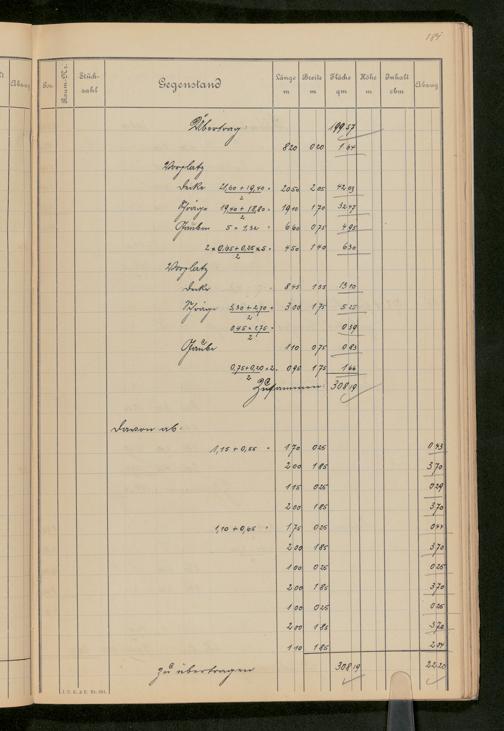 184
Pos. Raum-Nr. Stück-zahl Gegenstand Länge m Breite m Fläche qm Höhe m Inhalt cbm Abzug
Übertrag: 199 57
8 20 0 20 1 64
Vorplatz
Decke 21,60 + 19,40 / 2 = 20 50 2 05 42 03
Schräge 19,40 + 18,80 / 2 = 19 10 1 70 32 47
Gauben 5 × 1,32 = 6 60 0 75 4 95
2 × 0,65 + 0,25 × 5 / 2 = 4 50 1 40 6 30
Vorplatz
Decke 8 45 1 55 13 10
Schräge 3,30 + 2,70 / 2 = 3 00 1 75 5 25
0,45 × 1,75 / 2 = 0 39
Gaube 1 10 0 75 0 83
0,75 + 0,20 × 2 / 2 = 0 95 1 75 1 66
Zusammen: 308 19
Davon ab:
1,15 + 0,55 = 1 70 0 25 0 43
2 00 1 85 3 70
1 15 0 25 0 29
2 00 1 85 3 70
1,10 + 0,65 = 1 75 0 25 0 44
2 00 1 85 3 70
1 00 0 25 0 25
2 00 1 85 3 70
1 00 0 25 0 25
2 00 1 85 3 70
1 10 1 85 2 04
zu übertragen 308 19 22 20